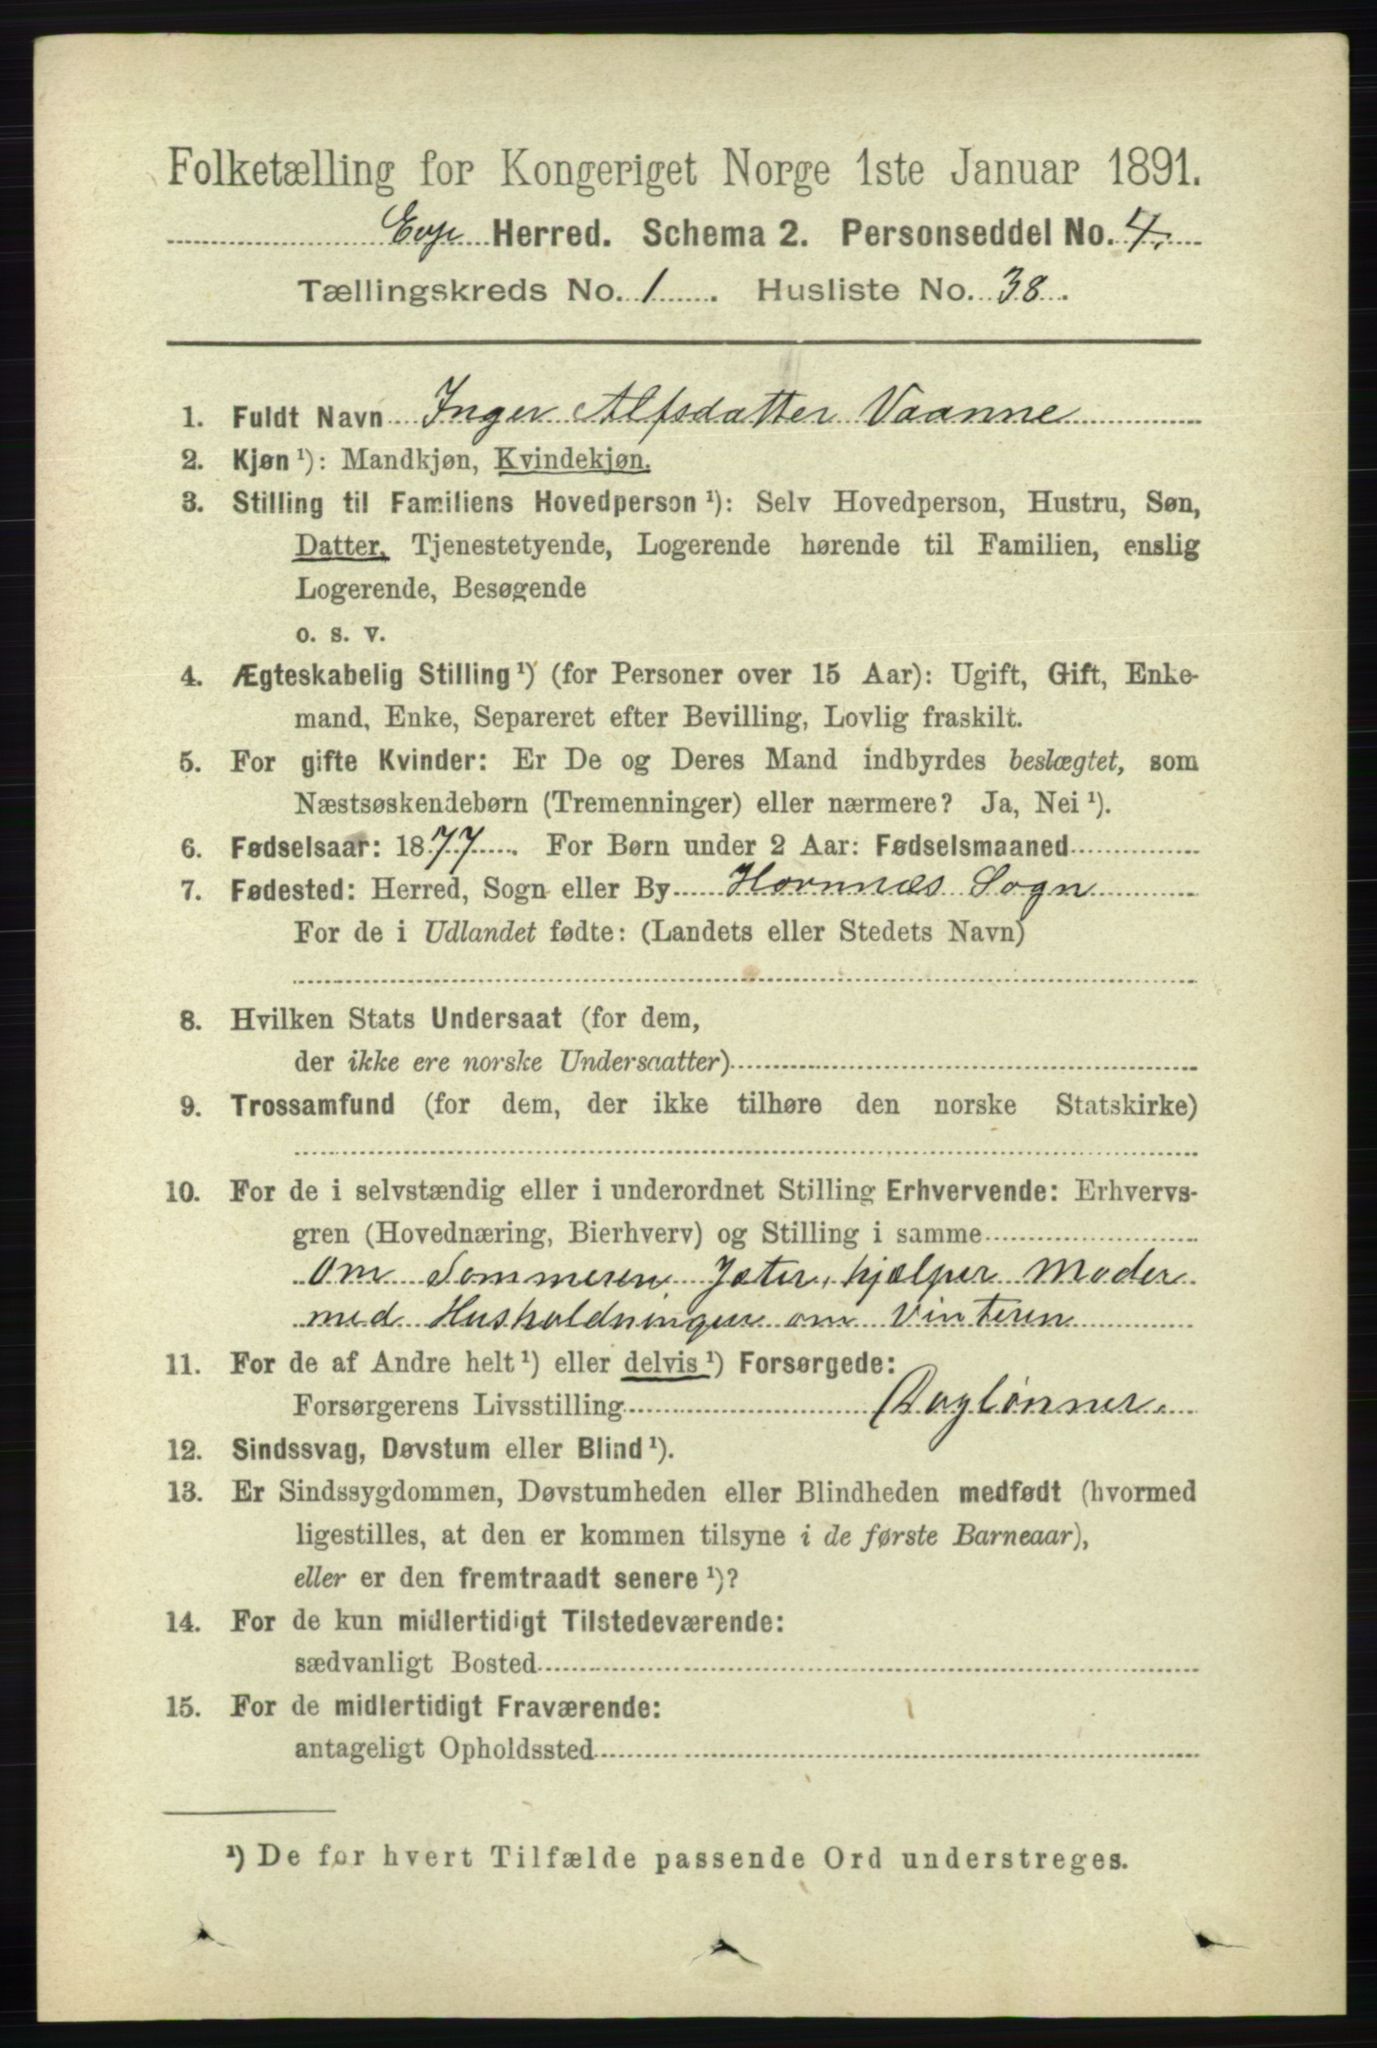 Folketælling for Kongeriget Norge 1ste Januar 1891.
Evje Herred. Schema 2. Personseddel No. 4.
Tællingskreds No. 1. Husliste No. 38.
1. Fuldt Navn Inger Alfsdatter Vaanne
2. Kjøn ¹): Mandkjøn, Kvindekjøn.
3. Stilling til Familiens Hovedperson ¹): Selv Hovedperson, Hustru, Søn,
Datter, Tjenestetyende, Logerende hørende til Familien, enslig
Logerende, Besøgende
o. s. v.
4. Ægteskabelig Stilling ¹) (for Personer over 15 Aar): Ugift, Gift, Enke-
mand, Enke, Separeret efter Bevilling, Lovlig fraskilt.
5. For gifte Kvinder: Er De og Deres Mand indbyrdes beslægtet, som
Næstsøskendebørn (Tremenninger) eller nærmere? Ja, Nei ¹).
6. Fødselsaar: 1877. For Børn under 2 Aar: Fødselsmaaned
7. Fødested: Herred, Sogn eller By Hornnæs Sogn
For de i Udlandet fødte: (Landets eller Stedets Navn)
8. Hvilken Stats Undersaat (for dem,
der ikke ere norske Undersaatter)
9. Trossamfund (for dem, der ikke tilhøre den norske Statskirke)
10. For de i selvstændig eller i underordnet Stilling Erhvervende: Erhvervs-
gren (Hovednæring, Bierhverv) og Stilling i samme
om Sommeren Jæter, hjælper Moder
med Husholdningen om Vinteren
11. For de af Andre helt ¹) eller delvis ¹) Forsørgede:
Forsørgerens Livsstilling Daglønner.
12. Sindssvag, Døvstum eller Blind ¹).
13. Er Sindssygdommen, Døvstumheden eller Blindheden medfødt (hvormed
ligestilles, at den er kommen tilsyne i de første Barneaar),
eller er den fremtraadt senere ¹)?
14. For de kun midlertidigt Tilstedeværende:
sædvanligt Bosted
15. For de midlertidigt Fraværende:
antageligt Opholdssted
¹) De for hvert Tilfælde passende Ord understreges.